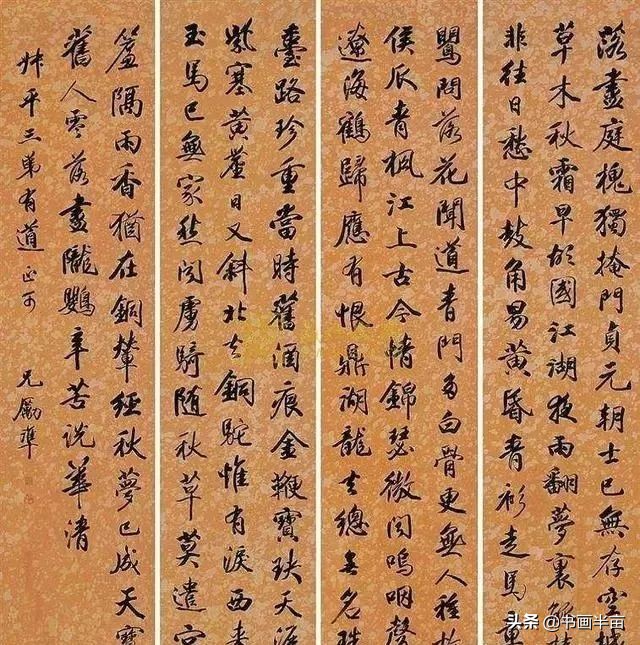 落盡庭槐獨掩門貞元朝士已無存空
草木秋霜早故國江湖夜雨翻夢裏
非往日愁中鼓角易黃昏青衫走馬重
鸎閒落花聞道青門多白骨更無人種
侯瓜青楓江上古今情錦瑟微聞嗚咽聲
遼海鶴歸應有恨鼎湖龍去總無名珠
臺路珍重當時舊酒痕金鞭寶玦天涯
紫塞黃蘆日又斜北去銅駝惟有淚西来
玉馬已無家愁聞虜騎随秋草莫遣宮
簾隅雨香猶在銅輦經秋夢已成天寶
舊人零落盡隴鸚辛苦説華清
叔平三弟有道正可
兄勵準
头条 @书画半亩